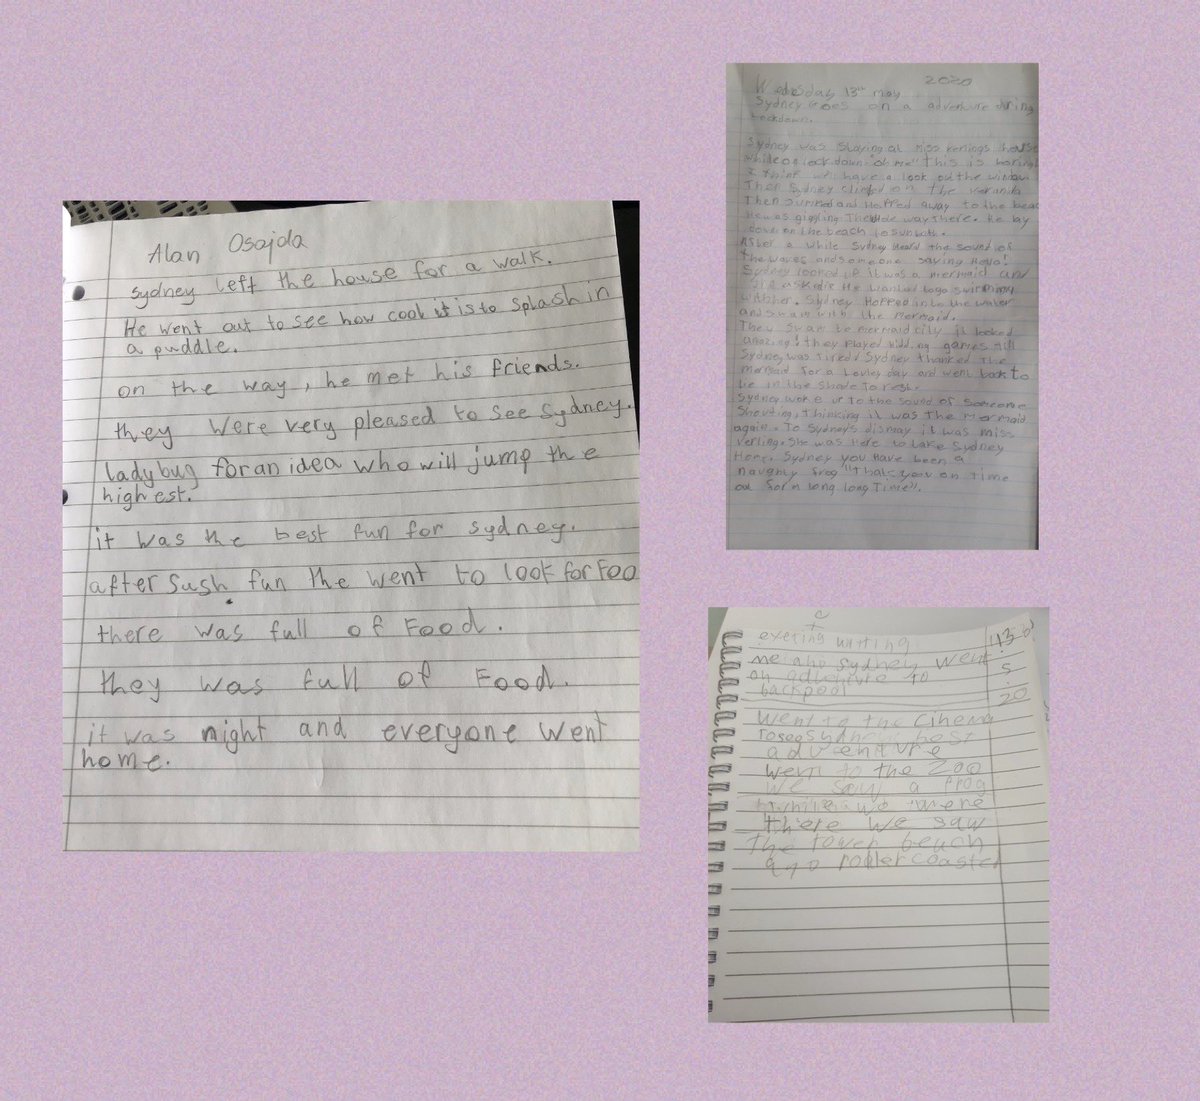 Alan Osajda
Sydney left the house for a walk.
He went out to see how cool it is to splash in
a puddle.
on the way, he met his friends.
they were very pleased to see Sydney.
ladybug for an idea who will jump the
highest.
it was the best fun for sydney.
after sush fun the went to look for Foo
there was full of Food.
they was full of Food.
it was night and everyone went
home.
2020
Wednesday 13th may
Sydney Goes on a adventure during
Lockdown.
Sydney was staying at miss verlings house
while on lock down "oh me" this is boring
I think we have a look out the window
Then Sydney climbed on the veranda
Then Jumped and Hopped away to the beac
He was giggling The whole way there. He lay
down on the beach to sunbath.
After a while Sydney Heard the sound of
the waves and someone saying Hello!
Sydney looked up it was a mermaid and
asked is He wanted to go swimming
with her. Sydney Hopped into the water
and swam with the mermaid.
They swam to mermaid city it looked
amazing! they Played hiding games till
Sydney was tired. Sydney thanked The
mermaid for a Lovley day and went back to
lie in the shade To rest.
Sydney woke up to the sound of someone
Shouting, Thinking it was The Mermaid
again. To Sydney's dismay it was miss
verling. She was Here to take Sydney
Home. Sydney you have been a
naughty frog "thats you on time
out for a long long Time".
writing
me and Sydney went
on adventure to
backpool
went to the cinema
to see best
adventure
went to the Zoo
we saw a frog
while we were
there we saw
the tower beach
and rollercoaster
13
5
20